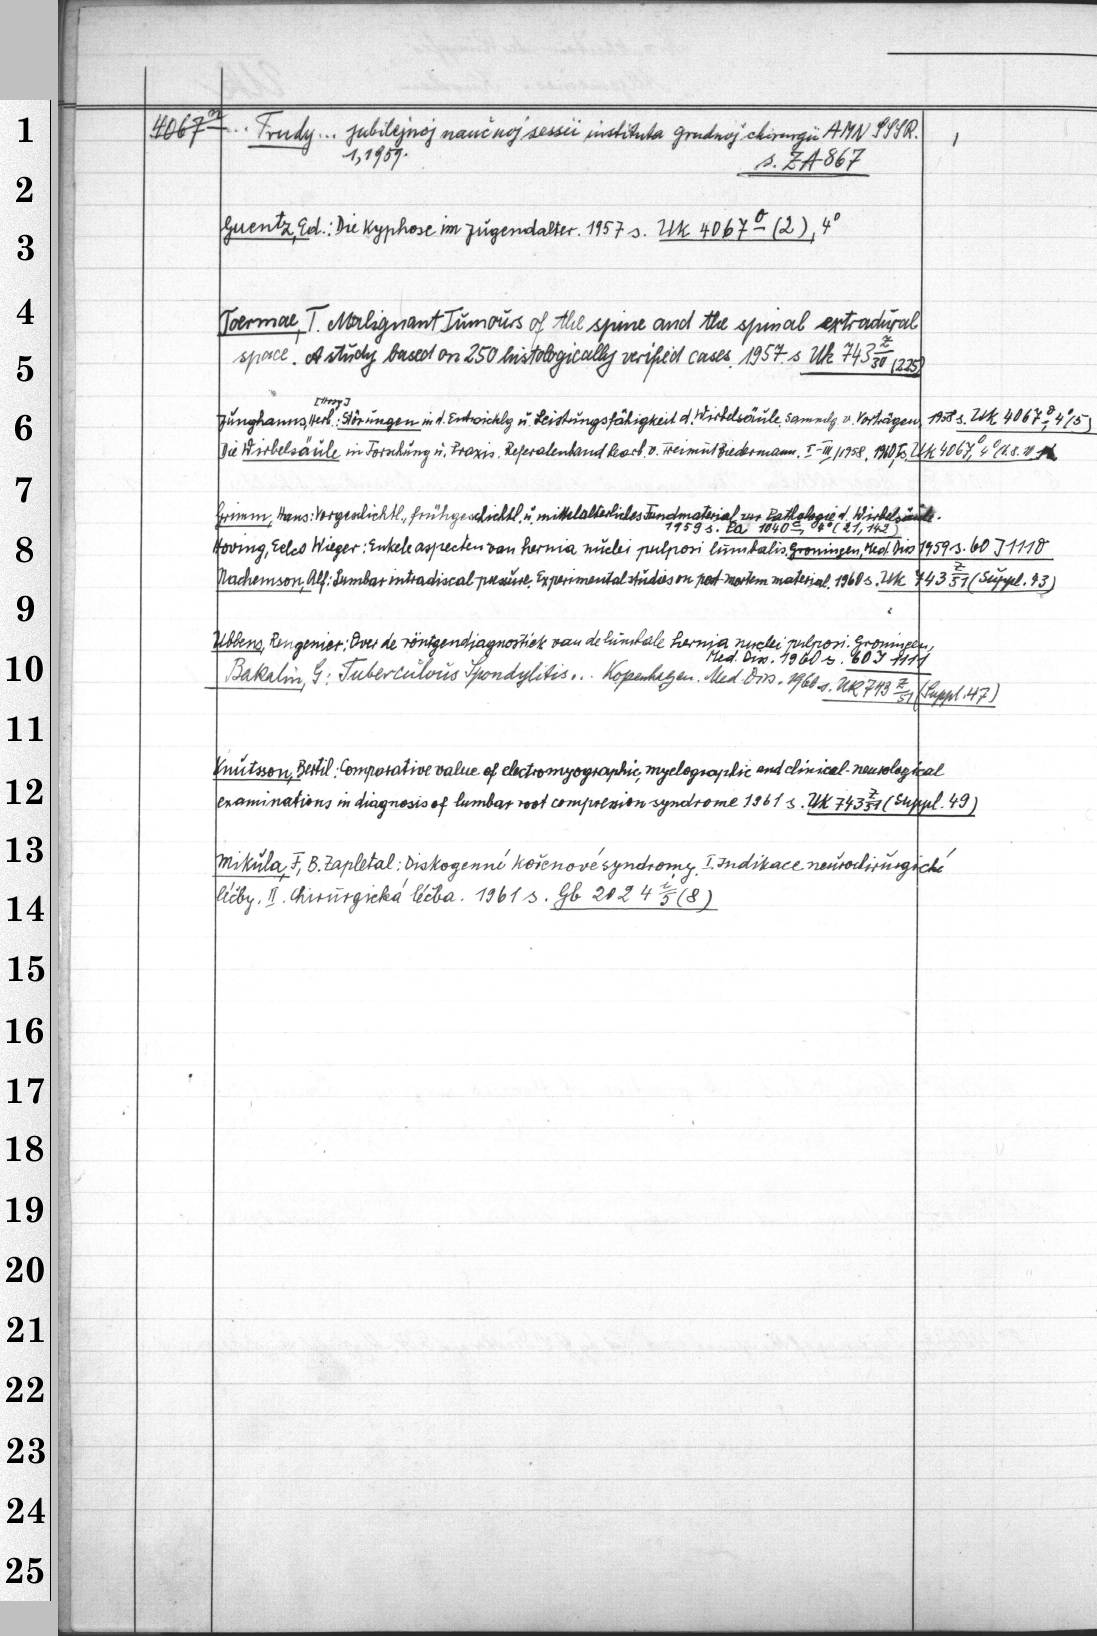 1
4067 ... Trudy... jubilejnoj naučnoj sessii instituta grudnoj chirurgii AMN SSSR. 1
1, 1959.
s. ZA 867
2
3
Guentz, Ed.: Die Kyphose im Jugendalter. 1957 s. Uk 4067 º (2), 4º
4
Toermae, T. Malignant Tumours of the spine and the spinal extradural
5
space. A study based on 250 histologically verified cases. 1957. s Uk 743 Z/30 (225)
[Hrsg]
6
Junghanns, Herb.: Störungen in d. Entwicklg u. Leistungsfähigkeit d. Wirbelsäule. Sammlg v. Vorträgen. 1958 s. Uk 4067 º, 4º (5)
Die Wirbelsäule in Forschung u. Praxis. Referatenband bearb. v. Freimut Biedermann. I-III/1958, 1960 s. Uk 4067, 4º
7
Grimm, Hans: Vorgeschichtl., frühgeschichtl. u. mittelalterliches Fundmaterial zur Pathologie d. Wirbelsäule.
1959 s. Pa 1040 a, 4º (21, 142)
8
Hoving, Eelco Wieger: Enkele aspecten van hernia nuclei pulposi lumbalis. Groningen, Med. Diss 1959. s. 60 J 1110
Nachemson, Alf: Lumbar intradiscal pressure. Experimental studies on post-mortem material. 1960 s. Uk 743 Z/51 (Suppl. 43)
9
Ubbens, Rengenier: Over de röntgendiagnostiek van de lumbale hernia nuclei pulposi. Groningen,
Med. Diss. 1960 s. 60 J 1111
10
Bakalim, G: Tuberculous Spondylitis... Kopenhagen. Med. Diss. 1960 s. UK 743 Z/51 (Suppl. 47)
11
Knutsson, Bertil: Comparative value of electromyographic, myelographic and clinical-neurological
12
examinations in diagnosis of lumbar root compression syndrome 1961 s. Uk 743 Z/51 (Suppl. 49)
13
Mikula, F., B. Zapletal: Diskogenné kořenové syndromy. I. Indikace neurochirurgické
14
léčby. II. Chirurgická léčba. 1961 s. Gb 2024 Z/5 (8)
15
16
17
18
19
20
21
22
23
24
25